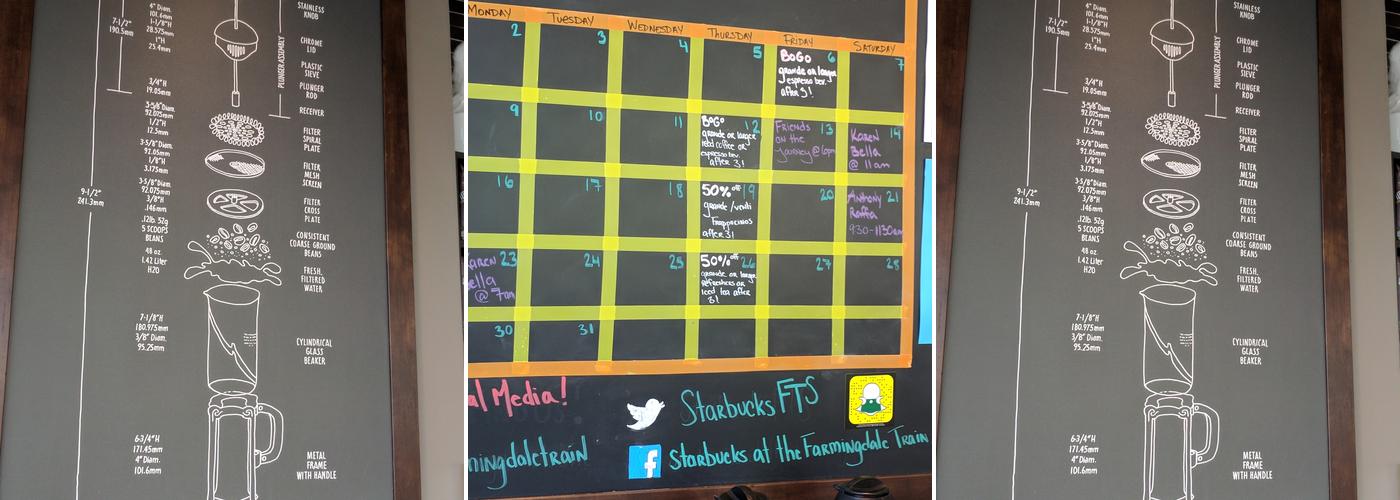 STAINLESS
KNOB
4" Diam.
101.6mm
1-1/8"H
28.575mm
1"H
25.4mm
7-1/2"
190.5mm
CHROME
LID
PLUNGER ASSEMBLY
PLASTIC
SIEVE
PLUNGER
ROD
3/4"H
19.05mm
RECEIVER
3-5/8" Diam.
92.075mm
1/2"H
12.5mm
FILTER
SPIRAL
PLATE
3-5/8" Diam.
92.05mm
1/8"H
3.175mm
FILTER
MESH
SCREEN
9-1/2"
241.3mm
3-5/8" Diam.
92.075mm
3/8"H
.146mm
FILTER
CROSS
PLATE
.12lb. 52g
5 SCOOPS
BEANS
CONSISTENT
COARSE GROUND
BEANS
48 oz.
1.42 Liter
H2O
FRESH,
FILTERED
WATER
7-1/8"H
180.975mm
3/8" Diam.
95.25mm
CYLINDRICAL
GLASS
BEAKER
6-3/4"H
171.45mm
4" Diam.
101.6mm
METAL
FRAME
WITH HANDLE
MONDAY TUESDAY WEDNESDAY THURSDAY FRIDAY SATURDAY
2 3 4 5 6 7
BOGO
grande or larger
espresso bev.
after 3!
9 10 11 12 13 14
BOGO
grande or larger
iced coffee or
espresso bev.
after 3!
Friends
on the
Journey @ 6pm
Karen
Bella
@ 11am
16 17 18 19 20 21
50% off
grande/venti
Frappuccinos
after 3!
Anthony
Raffa
9:30-11:30am
23 24 25 26 27 28
KAREN
Bella
@ 7am
50% off
grande or larger
refreshers or
iced tea after
3!
30 31
al Media!
Starbucks FTS
mingdaletrain
f Starbucks at the Farmingdale Train
STAINLESS
KNOB
4" Diam.
101.6mm
1-1/8"H
28.575mm
1"H
25.4mm
7-1/2"
190.5mm
CHROME
LID
PLUNGER ASSEMBLY
PLASTIC
SIEVE
PLUNGER
ROD
3/4"H
19.05mm
RECEIVER
3-5/8" Diam.
92.075mm
1/2"H
12.5mm
FILTER
SPIRAL
PLATE
3-5/8" Diam.
92.05mm
1/8"H
3.175mm
FILTER
MESH
SCREEN
9-1/2"
241.3mm
3-5/8" Diam.
92.075mm
3/8"H
.146mm
FILTER
CROSS
PLATE
.12lb. 52g
5 SCOOPS
BEANS
CONSISTENT
COARSE GROUND
BEANS
48 oz.
1.42 Liter
H2O
FRESH,
FILTERED
WATER
7-1/8"H
180.975mm
3/8" Diam.
95.25mm
CYLINDRICAL
GLASS
BEAKER
6-3/4"H
171.45mm
4" Diam.
101.6mm
METAL
FRAME
WITH HANDLE